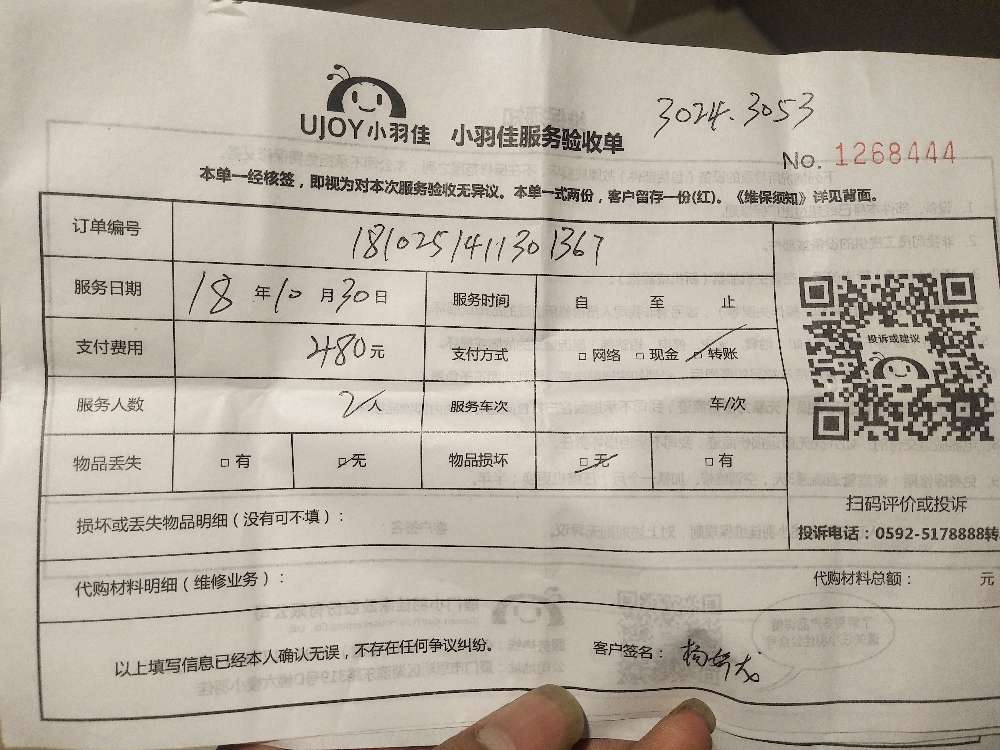 3024.3053
UJOY小羽佳 小羽佳服务验收单
No. 1268444
本单一经核签，即视为对本次服务验收无异议。本单一式两份，客户留存一份(红)。《维保须知》详见背面。
订单编号 1810251411301367
服务日期 18 年 10 月 30 日 服务时间 自 至 止
支付费用 480元 支付方式 □ 网络 □ 现金 ☑ 转账
投诉或建议
服务人数 2人 服务车次 车/次
物品丢失 □ 有 ☑ 无 物品损坏 ☑ 无 □ 有
扫码评价或投诉
损坏或丢失物品明细（没有可不填）：
投诉电话：0592-5178888转
代购材料明细（维修业务）： 代购材料总额： 元
以上填写信息已经本人确认无误，不存在任何争议纠纷。 客户签名：